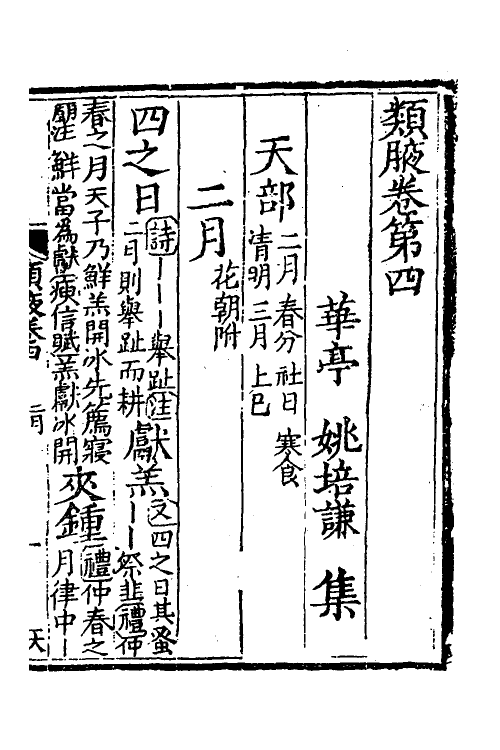 類腋卷第四
華亭 姚培謙 集
天部 二月 春分 社日 寒食
清明 三月 上巳
二月 花朝附
四之日 詩｜｜｜舉趾注
二日則舉趾而耕 獻羔 又四之日其蚤
｜｜祭韭 禮仲
春之月天子乃鮮羔開冰先薦寢
廟注鮮當為獻 庾信賦羔獻冰開 夾鍾 禮仲春之
月律中｜
類腋卷四 二月 一 天